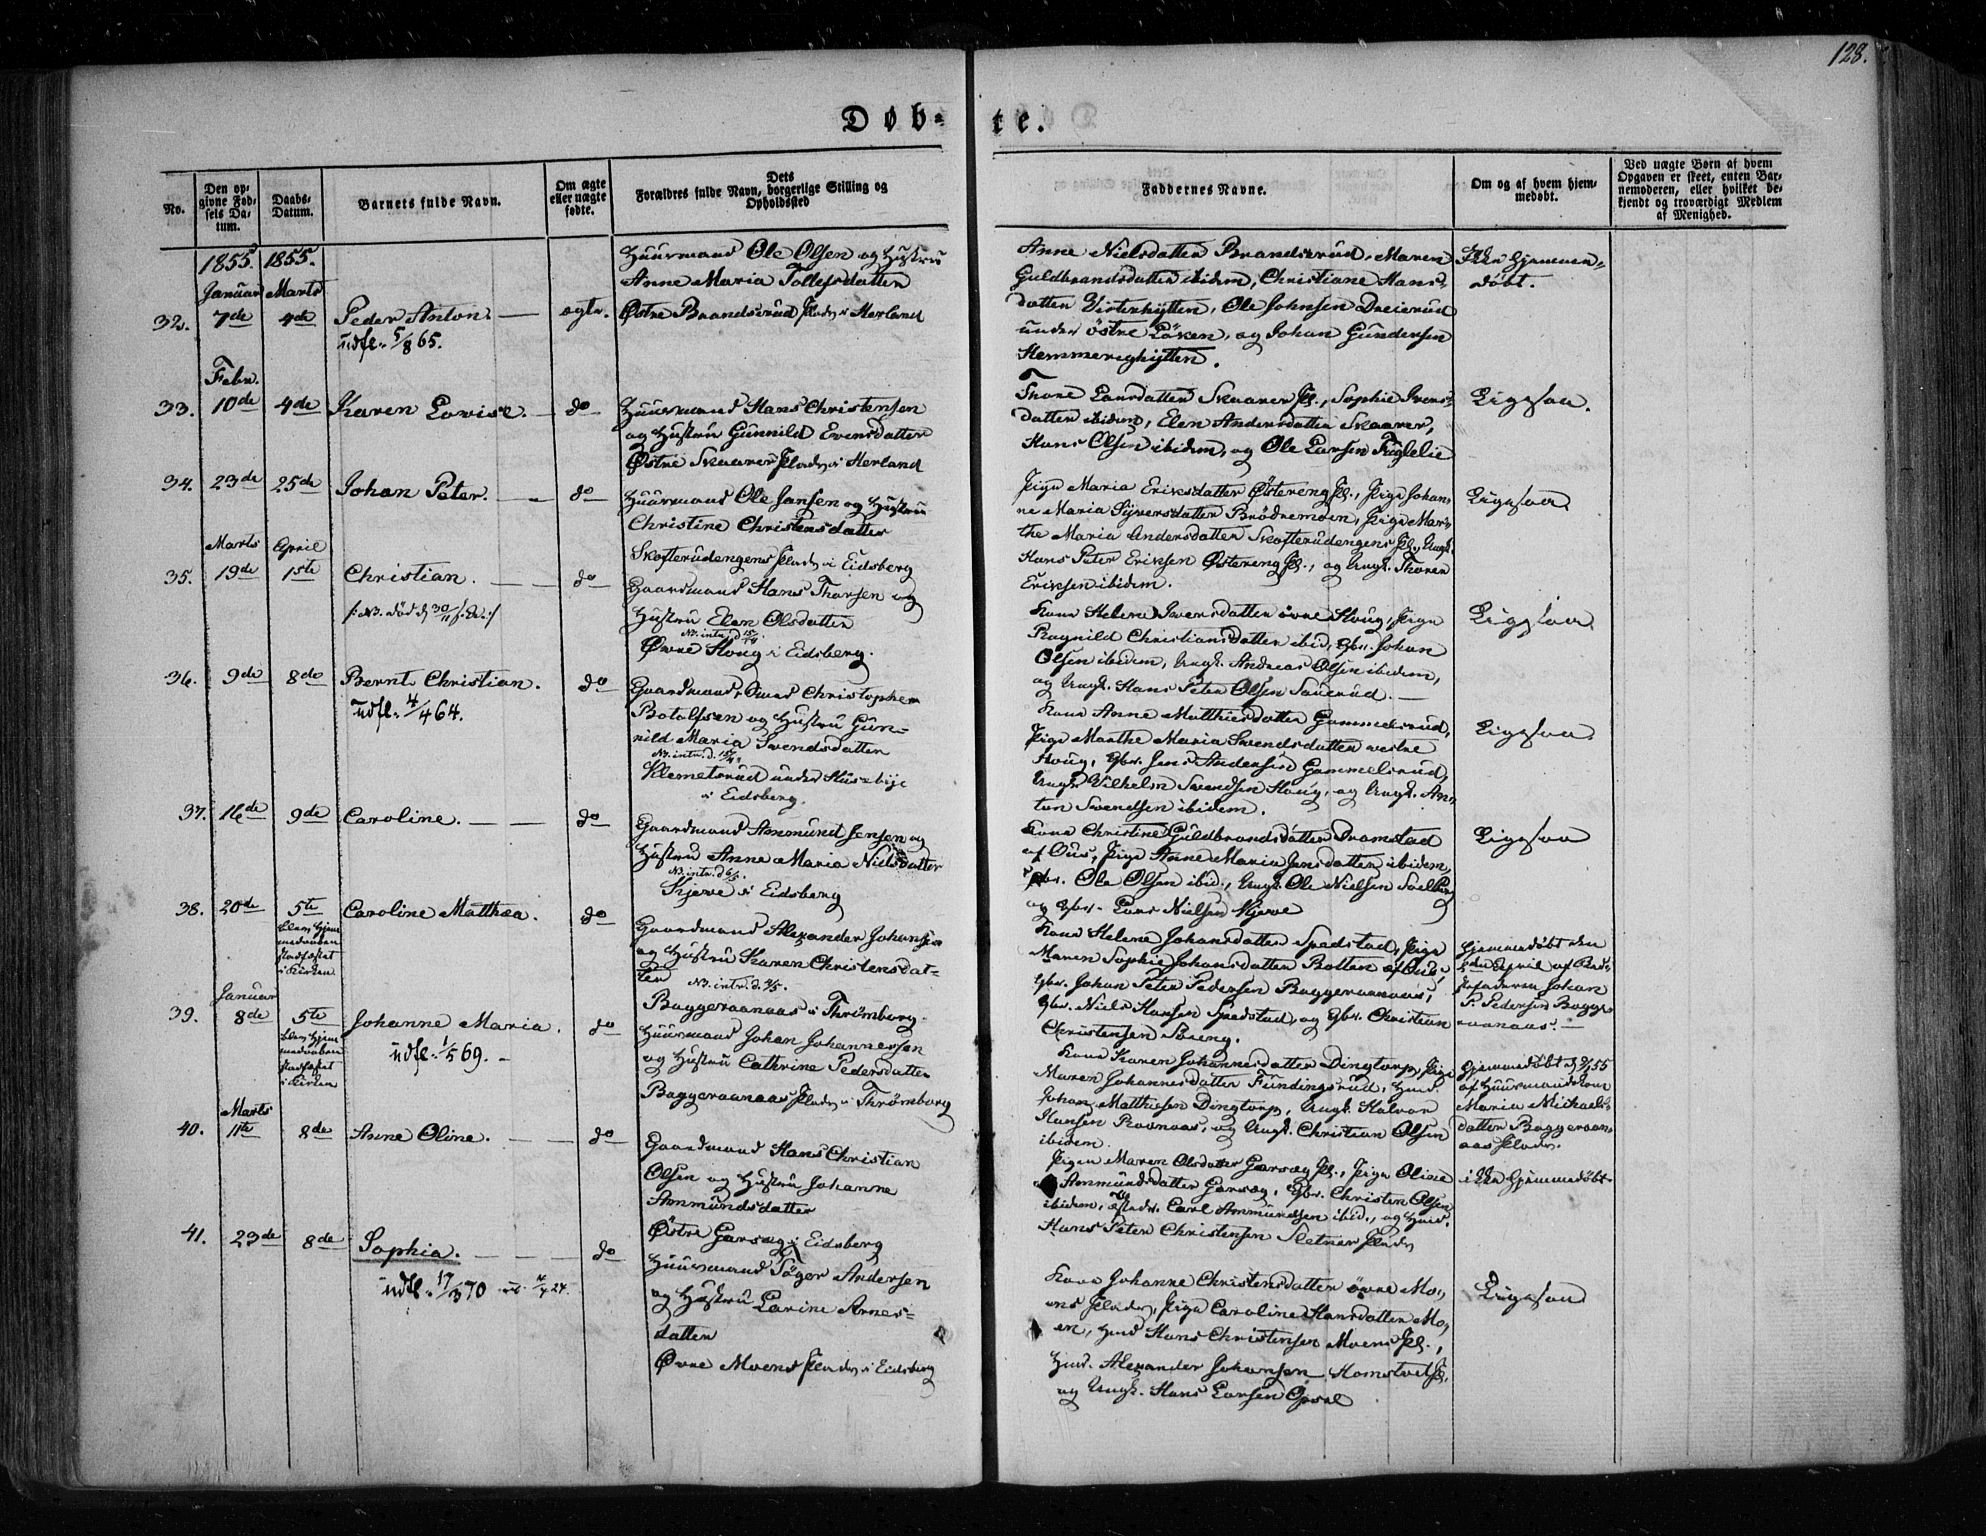 128.
Døb-
te.
No.
Den op-
givne Fød-
sels Da-
tum.
Daabs-
Datum.
Barnets fulde Navn.
Om ægte
eller uægte
fødte.
Dets
Forældres fulde Navn, borgerlige Stilling og
Opholdssted
Faddernes Navne.
Om og af hvem hjem-
medøbt.
Ved uægte Børn af hvem
Opgaven er skeet, enten Bar-
nemoderen, eller hvilket be-
kjendt og troværdigt Medlem
af Menighed.
1855. 1855.
Januar Marts
32. 7de 4de Peder Anton. — ægte.
udfl. 5/8 65.
Huusmand Ole Olsen og Hustru
Anne Maria Tollefsdatter
Østre Brandsrud Plads i Herland
Anne Nielsdatter Brandsrud, Maren
Guldbrandsdatter ibidem, Christiane Hans-
datter Vesterhytten, Ole Johnsen Dreierud
under østre Löken, og Johan Gundersen
Hemmerighytten.
Ikke hjemme-
døbt.
Febr.
33. 10de 4de Karen Lovise. — do
Huusmand Hans Christensen
og Hustru Gunnild Evensdatter
Østre Skaarer Plads i Herland
Thore Larsdatter Skaarer Pl., Sophie Ivers-
datter ibidem, Elen Andersdatter Skaarer,
Hans Olsen ibidem, og Ole Larsen Fuglelie
Ligesaa.
34. 23de 25de Johan Peter. — do
Huusmand Ole Jansen og Hustru
Christine Christensdatter
Skofterudengens Plads i Eidsberg
Pige Maria Eriksdatter Østereng Pl., Pige Johan-
ne Maria Syversdatter Brödremoen, Pige Mar-
the Maria Andersdatter Skofterudengens Pl., Ungk.
Hans Peter Eriksen Østereng Pl., og Ungk. Thorer
Eriksen ibidem.
Ligesaa
Marts April
35. 19de 1ste Christian. — do
/: NB. død d. 30/11 :/
Gaardmand Hans Thorsen og
Hustru Elen Olsdatter
NB. intr. d. 15/4
Øvre Houg i Eidsberg.
Kone Helene Iversdatter øvre Houg, Pige
Ragnild Christiansdatter ibid, Gbr. Johan
Olsen ibidem, Ungk. Andreas Olsen ibidem,
og Ungk. Hans Peter Olsen Sauerud. —
Ligesaa.
36. 9de 8de Bernt Christian. do
udfl. 4/4 64.
Gaardmand Christopher
Botolfsen og Hustru Gun-
nild Maria Svendsdatter
NB. intr. d. 15/4
Klemetsrud under Huseby
i Eidsberg.
Kone Anne Matthisdatter Gammelsrud,
Pige Marthe Maria Svendsdatter vestre
Houg, Gbr. Jens Andersen Gammelsrud,
Ungk. Vilhelm Svendsen Houg, og Ungk. An-
ton Svendsen ibidem.
Ligesaa.
37. 16de 9de Caroline. — — do
Gaardmand Ammund Jensen og
Hustru Anne Maria Nielsdatter
NB. intr. d. 6/5.
Kjerve i Eidsberg
Kone Christine Guldbrandsdatter Dramstad
af Ous, Pige Anne Maria Jensdatter ibidem,
Gbr. Ole Olsen ibid., Ungk. Ole Nielsen Soelberg
og Gbr. Lars Nielsen Kjerve
Ligesaa
38. 20de 5te Caroline Matthea. do
blev hjem-
medaaben
stadfæstet
i Kirken
Gaardmand Alexander Johansen
og Hustru Karen Christensdat-
ter NB. intr. d. 9/5.
Baggeraanaas i Thrømborg.
Kone Helene Johansdatter Spedstad, Pige
Maren Sophie Johansdatter Botten af Ous,
Gbr. Johan Peter Pedersen Baggeraanaas,
Gbr. Niels Hansen Spedstad, og Gbr. Christian
Christensen Soeng.
Hjemmedøbt den
April af Bed-
stefaderen Johan
P. Pedersen Bagge-
raanaas. —
Januar
39. 8de 5te Johanne Maria. do
udfl. 1/5 69. —
blev hjem-
medaaben
stadfæstet
i Kirken
Huusmand Johan Johannessen
og Hustru Cathrine Pedersdatter
Baggeraanaas Plads i Thrømborg
Kone Karen Johannesdatter Dingtorp, Pige
Maren Johannesdatter Fundingsrud, Huusm.
Johan Matthisen Dingtorp, Ungk. Halvor
Hansen Raanaas, og Ungk. Christian Olsen
ibidem.
Hjemmedøbt 55
af Huusmandskone
Maria Michaels-
datter Baggeraan-
aas Plads.
Marts
40. 11te 8de Anne Oline. — do
Gaardmand Hans Christian
Olsen og Hustru Johanne
Ammundsdatter
Østre Garsæg i Eidsberg
Pigen Maren Olsdatter Garsæg Pl., Pige Oline
Ammundsdatter Garsæg, Gbr. Christen Olsen
ibidem, Carl Ammundsen ibid., og Huusm.
Hans Peter Christensen Sletner Plads
ikke hjemmedøbt
41. 23de 8de Sophia. — — do
udfl. 17/3 70
Huusmand Töger Andersen
og Hustru Larine Arnes-
datter
Øvre Moens Plads i Eidsberg
Kone Johanne Christensdatter øvre Mo-
ens Plads, Pige Caroline Hansdatter Mo-
en, Huusm. Hans Christensen Moens Pl.,
Huusm. Alexander Johansen Homstvet Pl.
og Ungk. Hans Larsen Opsal
Ligesaa